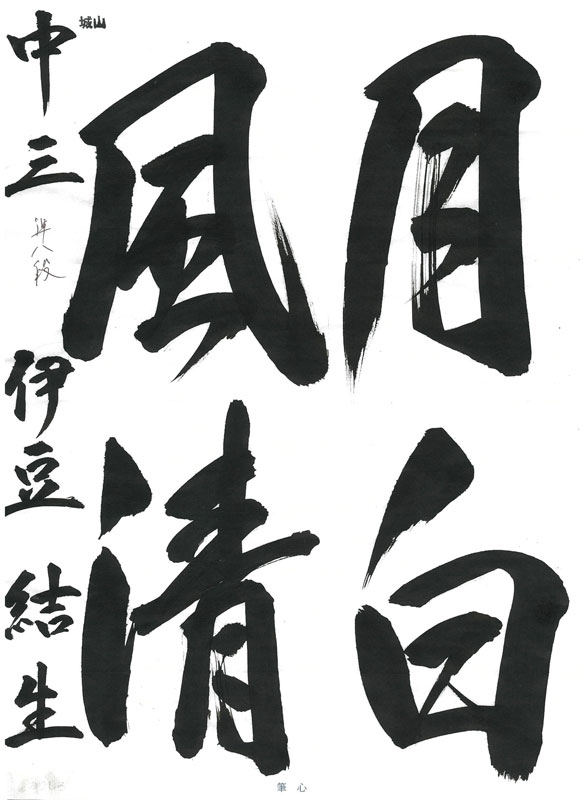 月白
風清
城山
中三 準八段 伊豆 結生
筆心